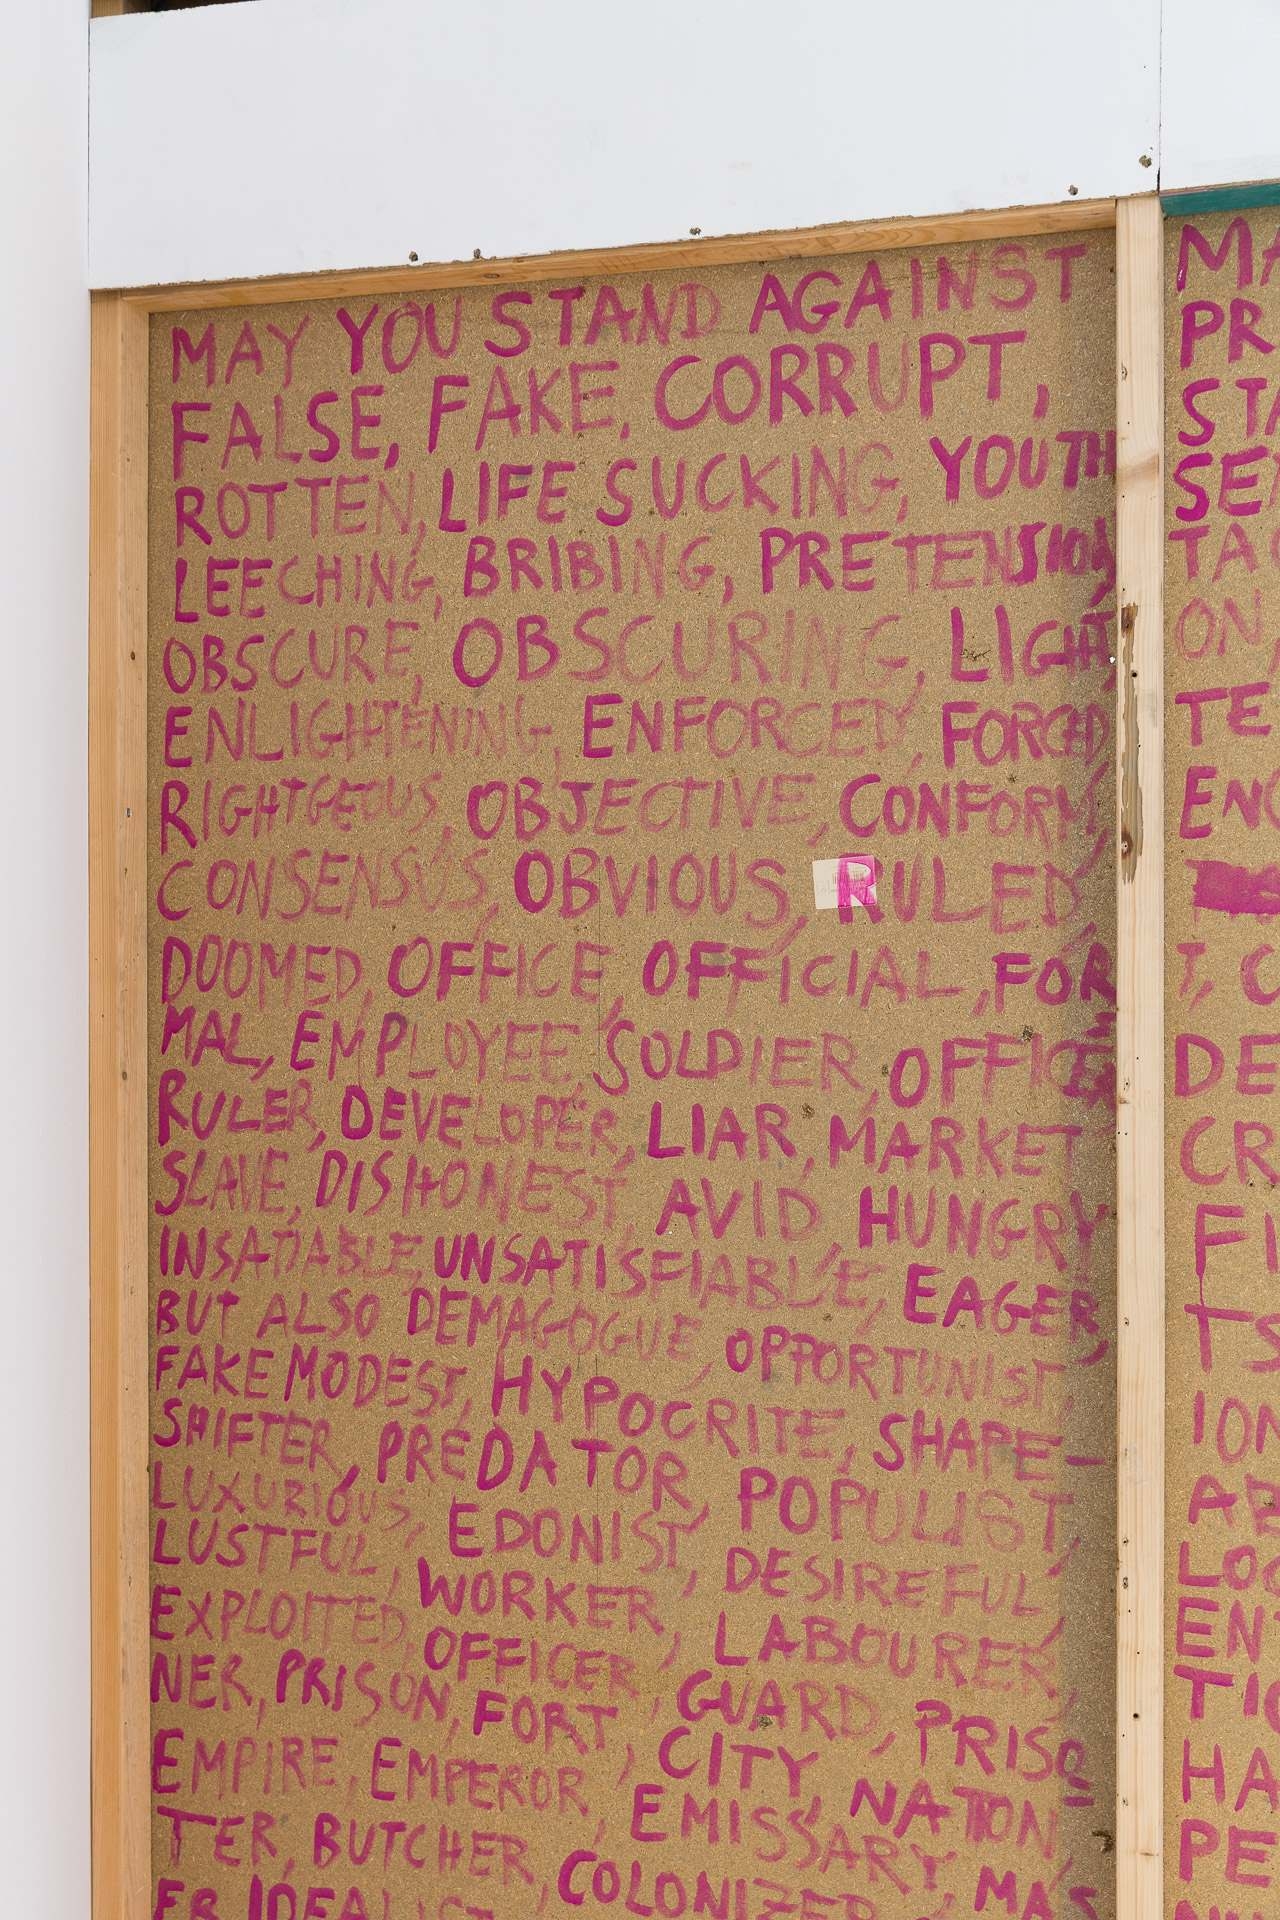 MAY YOU STAND AGAINST
FALSE, FAKE, CORRUPT,
ROTTEN, LIFE SUCKING, YOUTH
LEECHING, BRIBING, PRETENSION,
OBSCURE, OBSCURING, LIGHT,
ENLIGHTENING, ENFORCED, FORCED,
RIGHTGEOUS, OBJECTIVE, CONFORM,
CONSENSUS, OBVIOUS, RULED,
DOOMED, OFFICE, OFFICIAL, FOR
MAL, EMPLOYEE, SOLDIER, OFFICER
RULER, DEVELOPER, LIAR, MARKET
SLAVE, DISHONEST, AVID, HUNGRY
INSATIABLE, UNSATISFIABLE, EAGER,
BUT ALSO DEMAGOGUE, OPPORTUNIST,
FAKE MODEST, HYPOCRITE, SHAPE-
SHIFTER, PREDATOR, POPULIST,
LUXURIOUS, EDONIST, DESIREFUL,
LUSTFUL, WORKER, LABOURER,
EXPLOITED, OFFICER, GUARD, PRISO-
NER, PRISON, FORT, CITY, NATION,
EMPIRE, EMPEROR, EMISSARY, MAS
TER, BUTCHER, COLONIZER,
ER, IDEALIST
MA
PR
STA
SE
TA
ON
TE
ENC
T, C
DE
CR
FI
TS
ION
AB
LOC
ENT
TIO
HA
PE